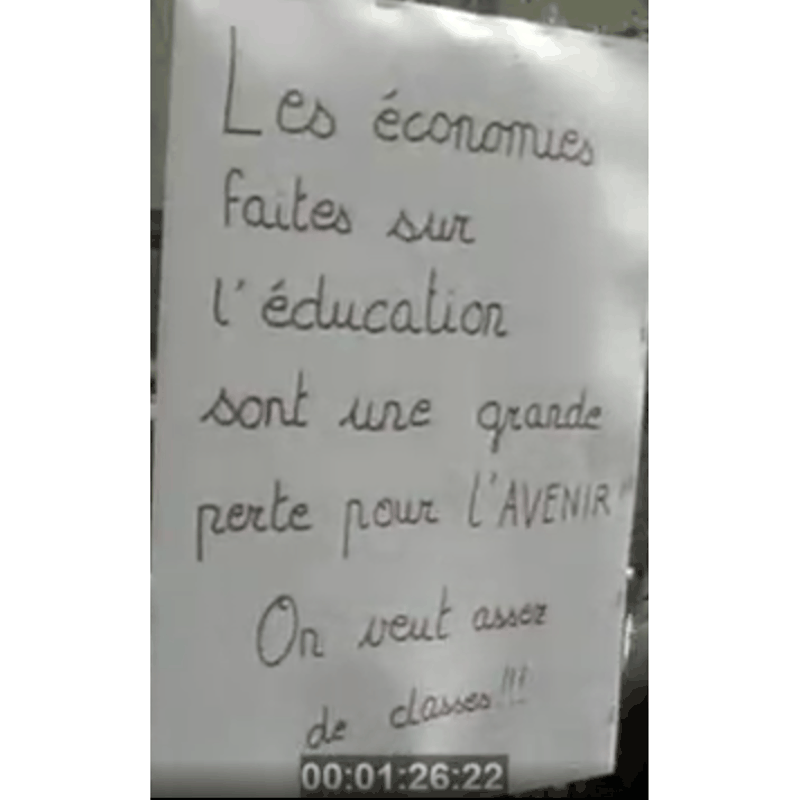 Les économies
faites sur
l'éducation
sont une grande
perte pour l'AVENIR"
On veut assez
de classes!!!
00:01:26:22